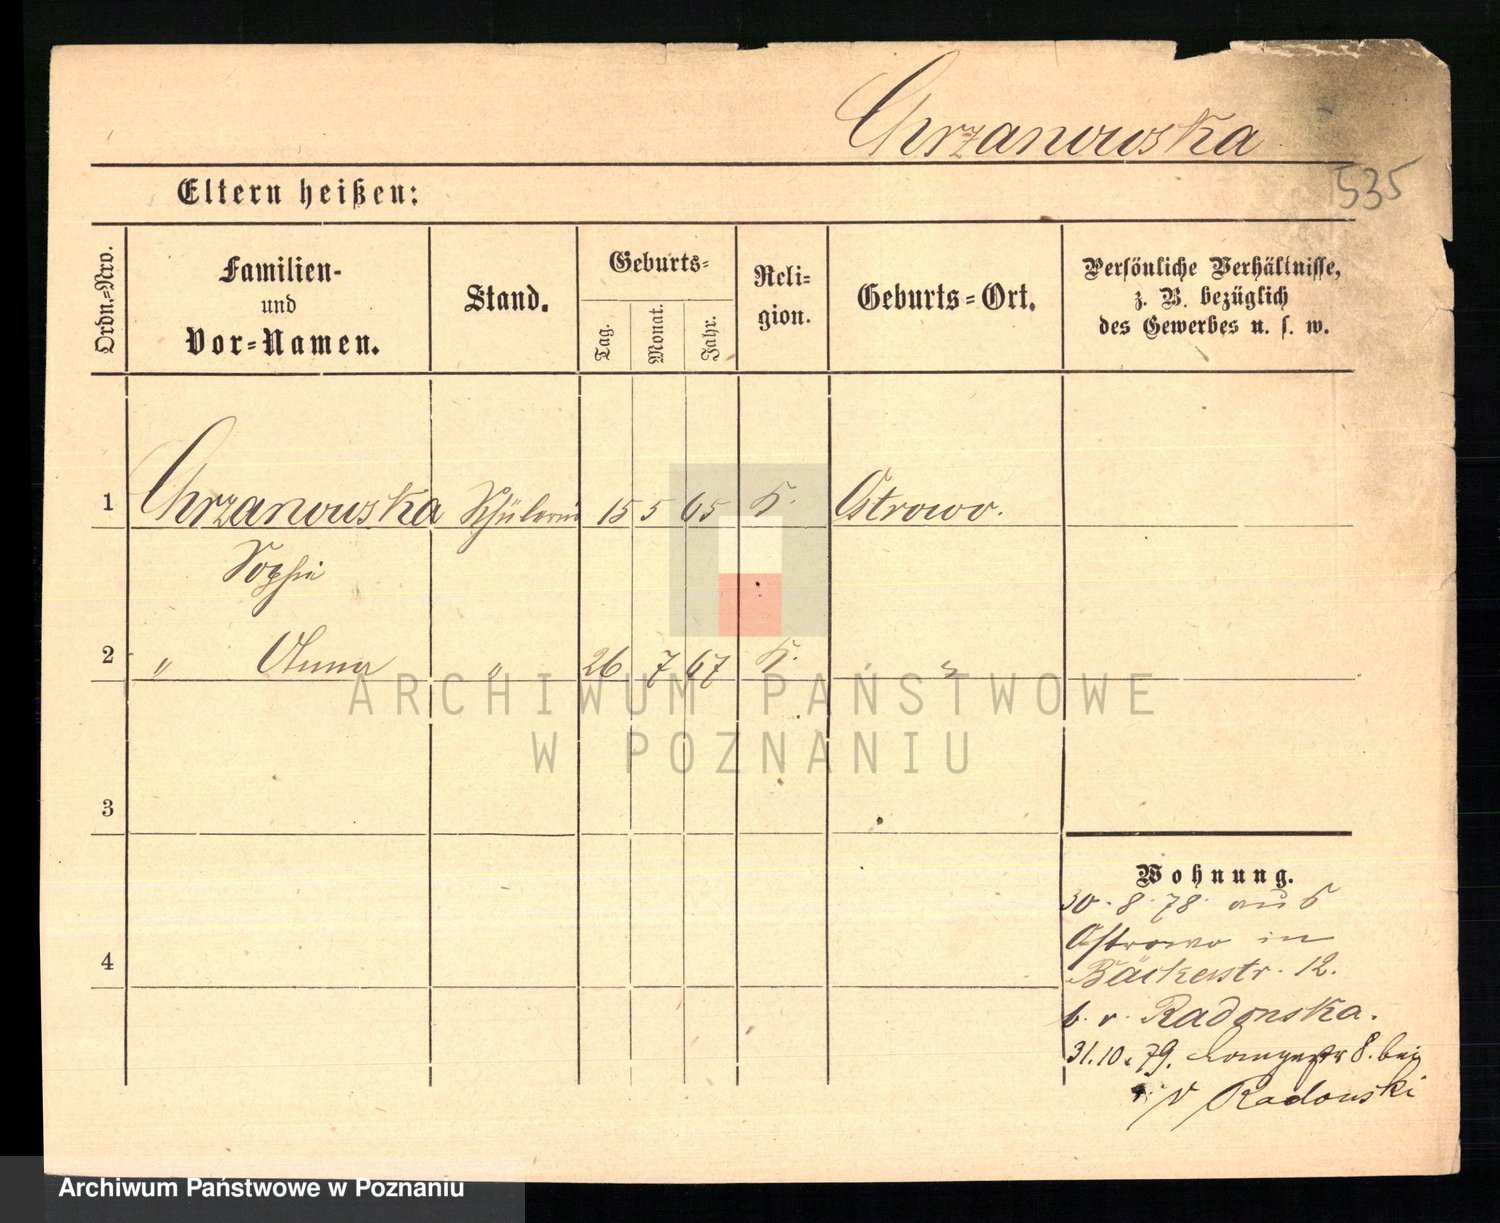 Chrzanowska
535
Eltern heißen:
Ordn.=Nro.
Familien-
und
Vor=Namen.
Stand.
Geburts=
Tag.
Monat.
Jahr.
Reli=
gion.
Geburts=Ort.
Persönliche Verhältnisse,
z. B. bezüglich
des Gewerbes u. s. w.
1 Chrzanowska Schülerin 15 5 65 K. Ostrowo.
Sophie
2 " Anna " 26 7 67 K. "
ARCHIWUM PAŃSTWOWE
W POZNANIU
3
4
Wohnung.
30. 8. 78. aus
Ostrowo in
Bäckerstr. 12.
b. v. Radonska.
31.10.79. Langestr 8. bei
v Radonski
Archiwum Państwowe w Poznaniu